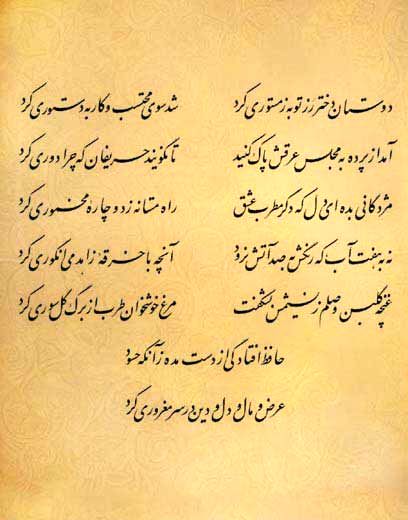 دوستان دختر رز توبه ز مستوری کرد شد سوی محتسب و کار به دستوری کرد
آمد از پرده به مجلس عرقش پاک کنید تا نگویند حریفان که چرا دوری کرد
مژدگانی بده ای دل که دگر مطرب عشق راه مستانه زد و چارهٔ مخموری کرد
نه به هفت آب که رنگش به صد آتش نرود آنچه با خرقهٔ زاهد می انگوری کرد
غنچهٔ گلبن وصلم ز نسیمش بشکفت مرغ خوشخوان طرب از برگ گل سوری کرد
حافظ افتادگی از دست مده زآنکه حسود
عرض و مال و دل و دین در سر مغروری کرد